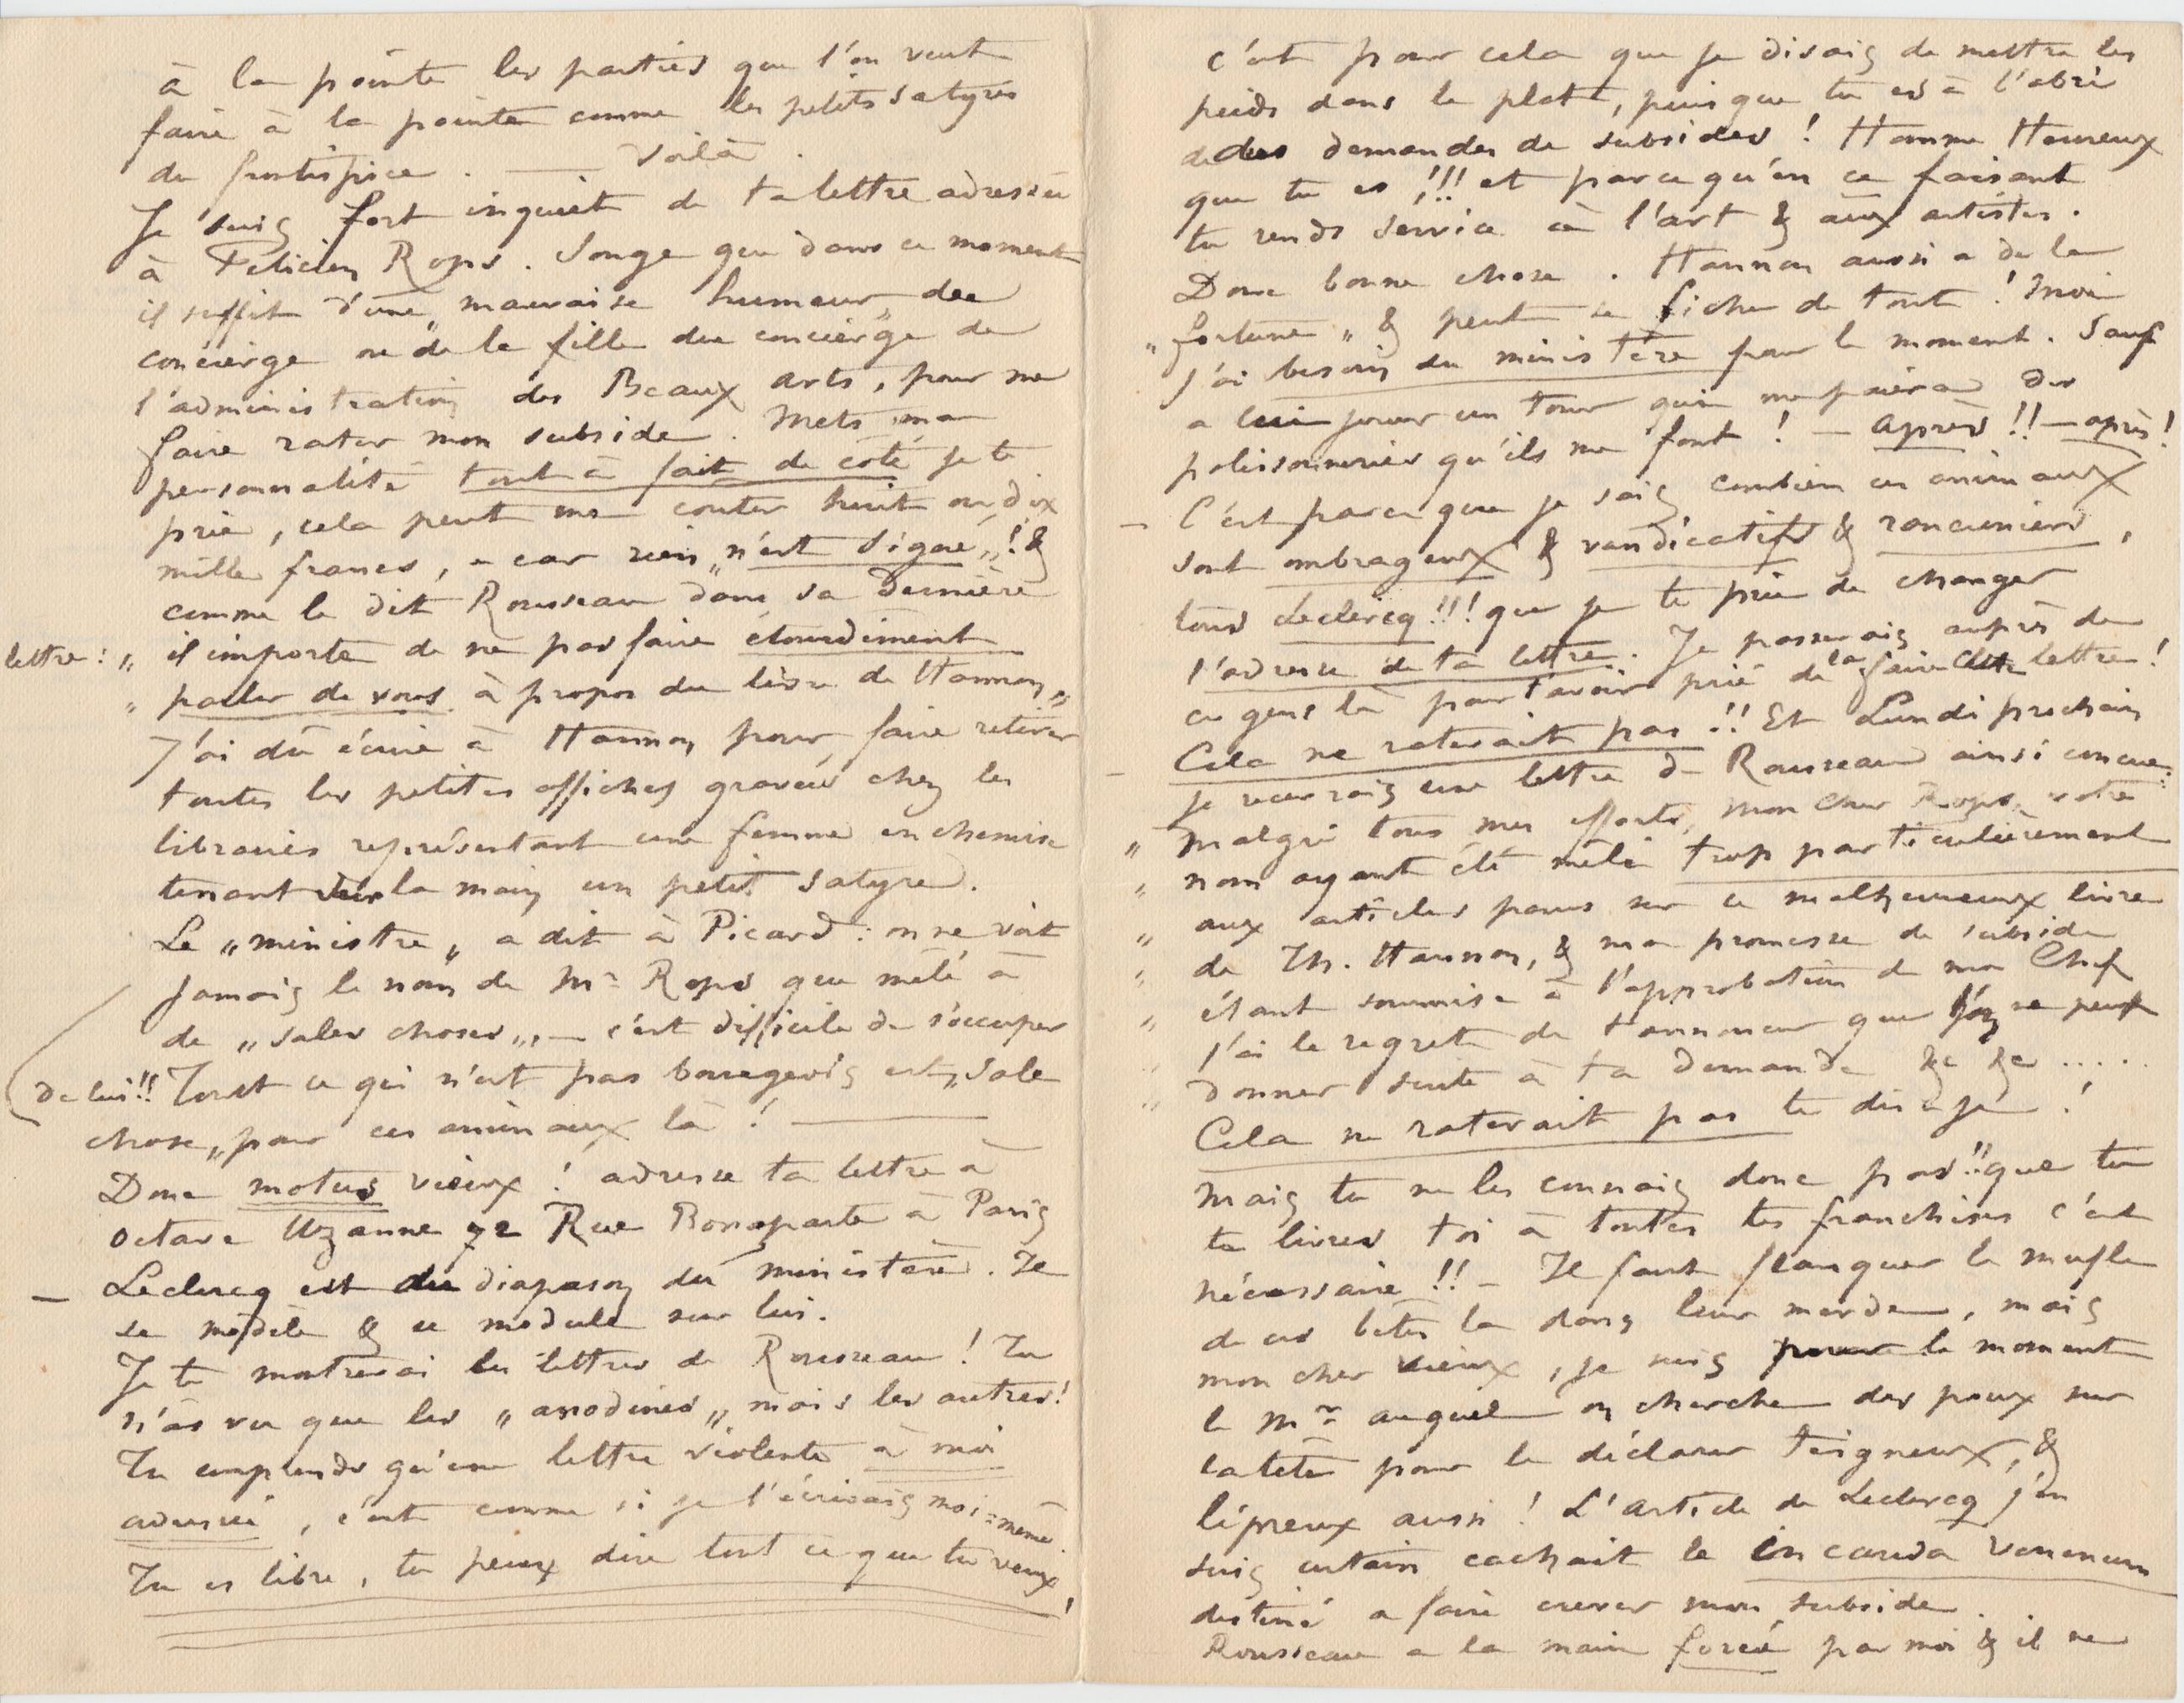 à la pointe les parties que l'on veut
faire à la pointe comme les petits satyres
du frontispice. — Voilà.
Je suis fort inquiet de ta lettre adressée
à Félicien Rops. Songe que dans ce moment
il suffit d'une „mauvaise humeur„ du
concierge ou de la fille du concierge de
l'administration des Beaux Arts, pour me
faire rater mon subside. Mets ma
personnalité tout à fait de côté je te
prie, cela peut me couter huit ou dix
mille francs, – car rien „n'est signé„! &
comme le dit Rousseau dans sa dernière
lettre: „ il importe de ne pas faire étourdiment
„ parler de vous à propos du livre de Hannon„
J'ai dû écrire à Hannon pour faire retirer
toutes les petites affiches gravées chez les
libraires représentant une femme en chemise
tenant sur la main un petit satyre.
Le „ministre„ a dit à Picard: on ne voit
jamais le nom de Mr Rops que mêlé à
de „sales choses„, – c'est difficile de s'occuper
de lui!! Tout ce qui n'est pas bourgeois est „sale
chose„ pour ces animaux là! —
Donc motus vieux! adresse ta lettre à
Octave Uzanne 72 Rue Bonaparte à Paris
– Leclercq est du diapason du ministère. Il
se modèle & se module sur lui.
Je te montrerai les lettres de Rousseau! Tu
n'as vu que les „anodines„ mais les autres!
Tu comprends qu'une lettre violente à moi
adressée, c'est comme si je l'écrivais moi=même.
Tu es libre, tu peux dire tout ce que tu veux,!
c'est pour cela que je disais de mettre les
pieds dans le plat, puisque tu es à l'abri
de des demandes de subsides! Homme Heureux
que tu es!!! et parcequ'en ce faisant
tu rends service à l'art & aux artistes.
Donc bonne chose. Hannon aussi a de la
„fortune„ & peut se ficher de tout! Moi
j'ai besoin du ministère pour le moment. Sauf
a lui jouer un tour qui me paiera des
polissonneries qu'ils me font! – Après!! – après!
– C'est parce que je sais combien ces animaux
sont ombrageux & vandicatifs & rancuniers,
tous Leclercq!!! que je te prie de changer
l'adresse de ta lettre. Je passerais auprès de
ces gens là pour t'avoir prié de la faire cette lettre!
– Cela ne raterait pas!! Et Lundi prochain
je recevrais une lettre de Rousseau ainsi conçue:
„ Malgré tous mes efforts, mon cher Rops, votre
„ nom ayant été mêlé trop particulièrement
„ aux articles parus sur ce malheureux livre
„ de Th. Hannon, & ma promesse de subside
„ étant soumise à l'approbation de mon Chef
„ j'ai le regret de t'annoncer que l'on ne peut
„ donner suite à ta demande &c &c .....
Cela ne raterait pas te dis-je!
Mais tu ne les connais donc pas!! que tu
te livres toi à toutes tes franchises c'est
nécessaire!! – Il faut flanquer le mufle
de ces bêtes la dans leur merde, mais
mon cher vieux, je suis pour le moment
le Mr auquel on cherche des poux sur
la tête pour le déclarer teigneux, &
lépreux aussi! L'article de Leclercq j'en
suis certain cachait le in cauda venenum
destiné a faire crever mon subside.
Rousseau a la main forcée par moi & il ne